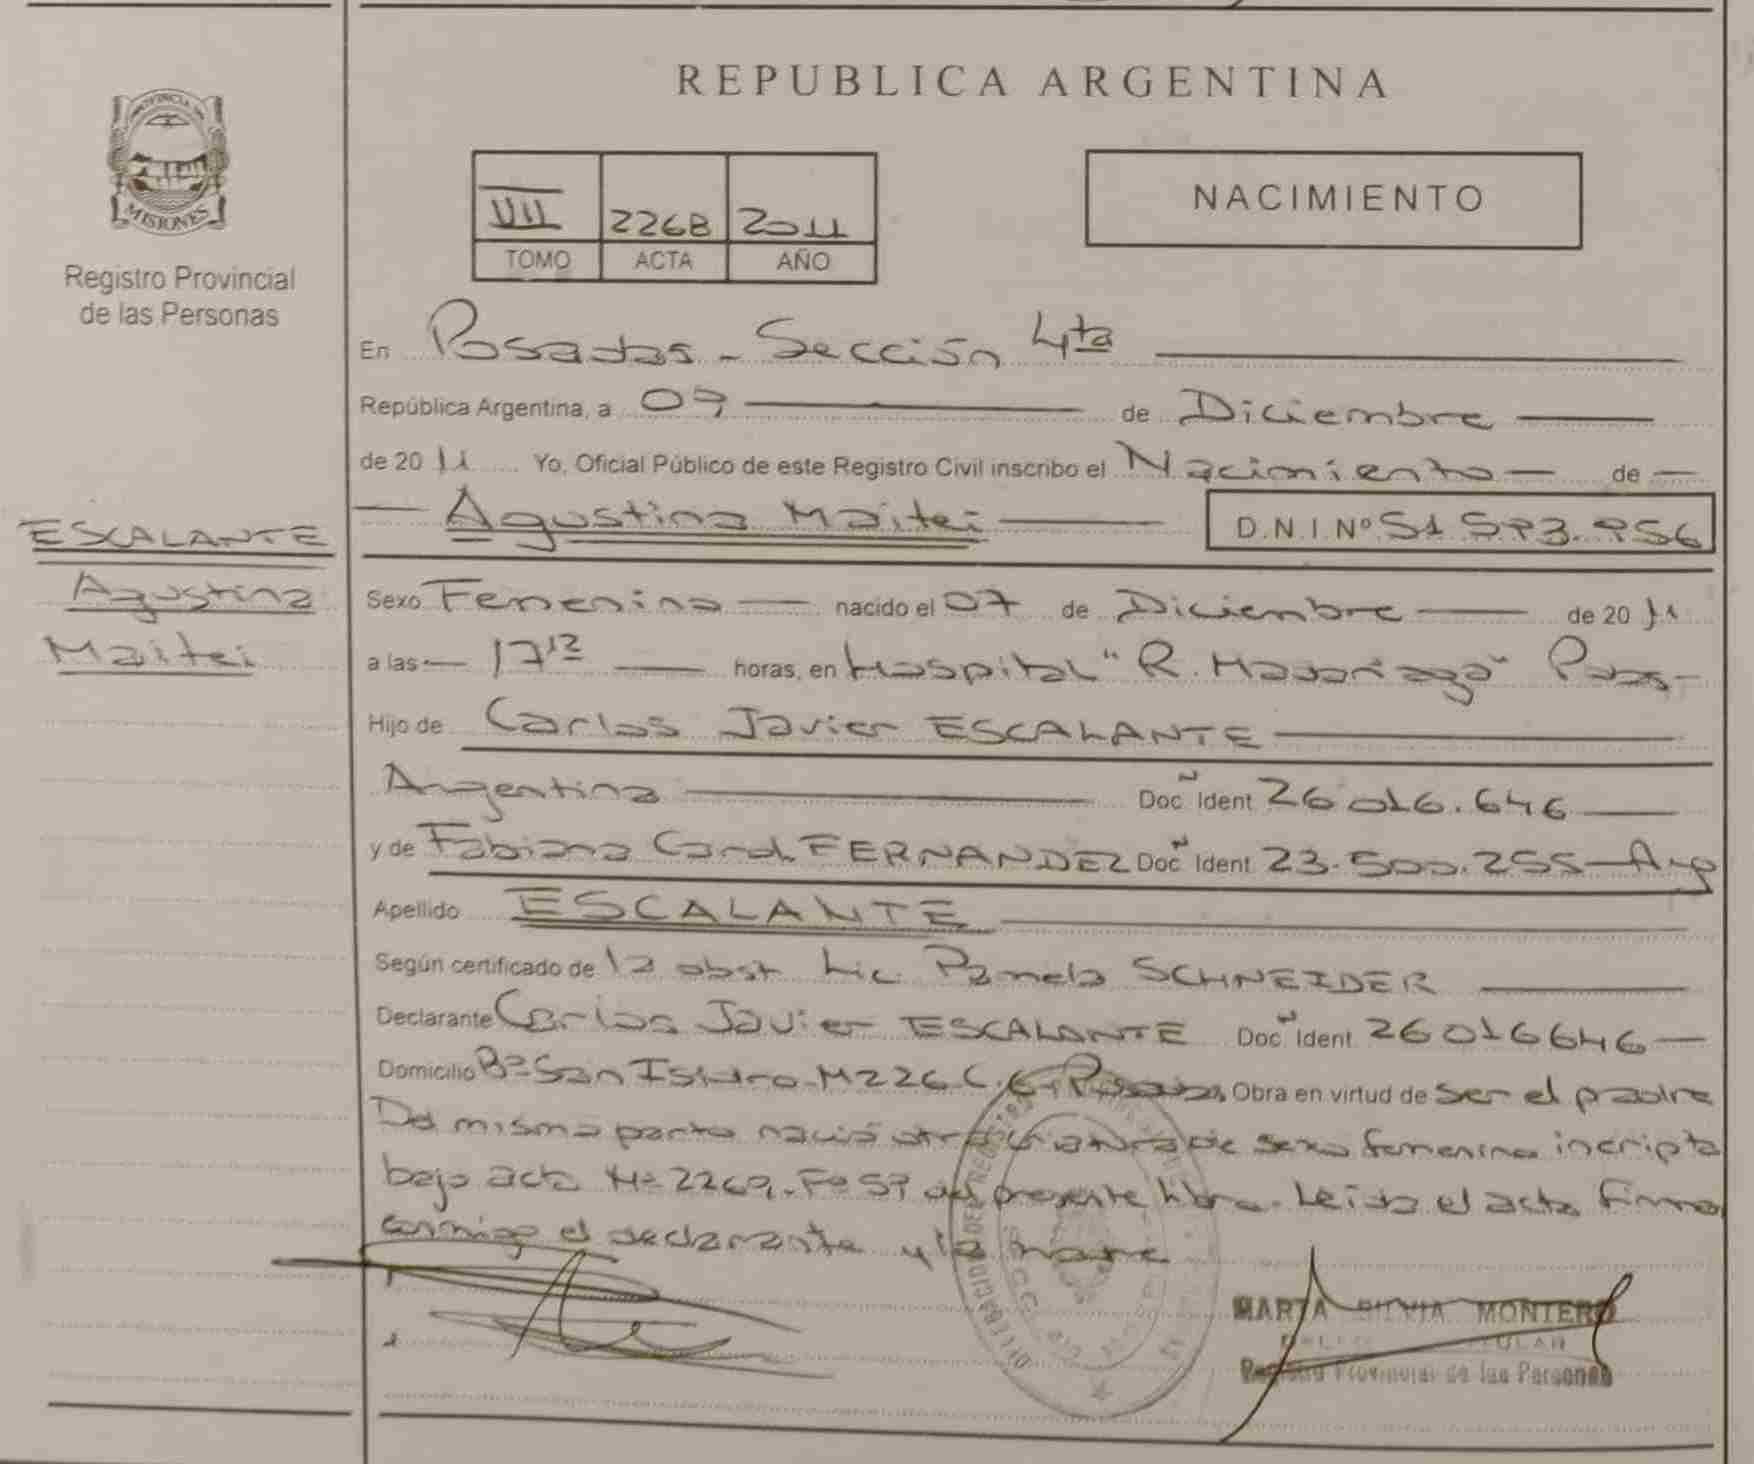 REPUBLICA ARGENTINA
PROVINCIA DE
MISIONES
Registro Provincial
de las Personas
NACIMIENTO
VIII 2268 2011
TOMO ACTA AÑO
En Posadas - Sección 4ta
República Argentina, a 09 de Diciembre
de 2011 Yo, Oficial Público de este Registro Civil inscribo el Nacimiento de
Agustina Maitei D.N.I. Nº
ESCALANTE
Agustina
Maitei
Sexo Femenino nacido el 07 de Diciembre de 2011
a las 17 12 horas, en Hospital "R. Madariaga" Pdas-
Hijo de Carlos Javier ESCALANTE
Argentina Doc Ident 26 016.646
y de Fabiana Carol FERNANDEZ Doc Ident 23.500.255 - Arg
Apellido ESCALANTE
Según certificado de la obst Lic. Pamela SCHNEIDER
Declarante Carlos Javier ESCALANTE Doc Ident 26016646
Domicilio Bº San Isidro M226 C.6 - Posadas Obra en virtud de ser el padre
Del mismo parto nació otra criatura de sexo femenino incripta
bajo acta Nº 2269. Fº 57 del presente libro. Leida el acta firma
conmigo el declarante y la madre
MARTA SILVIA MONTERO
Registro Provincial de las Personas